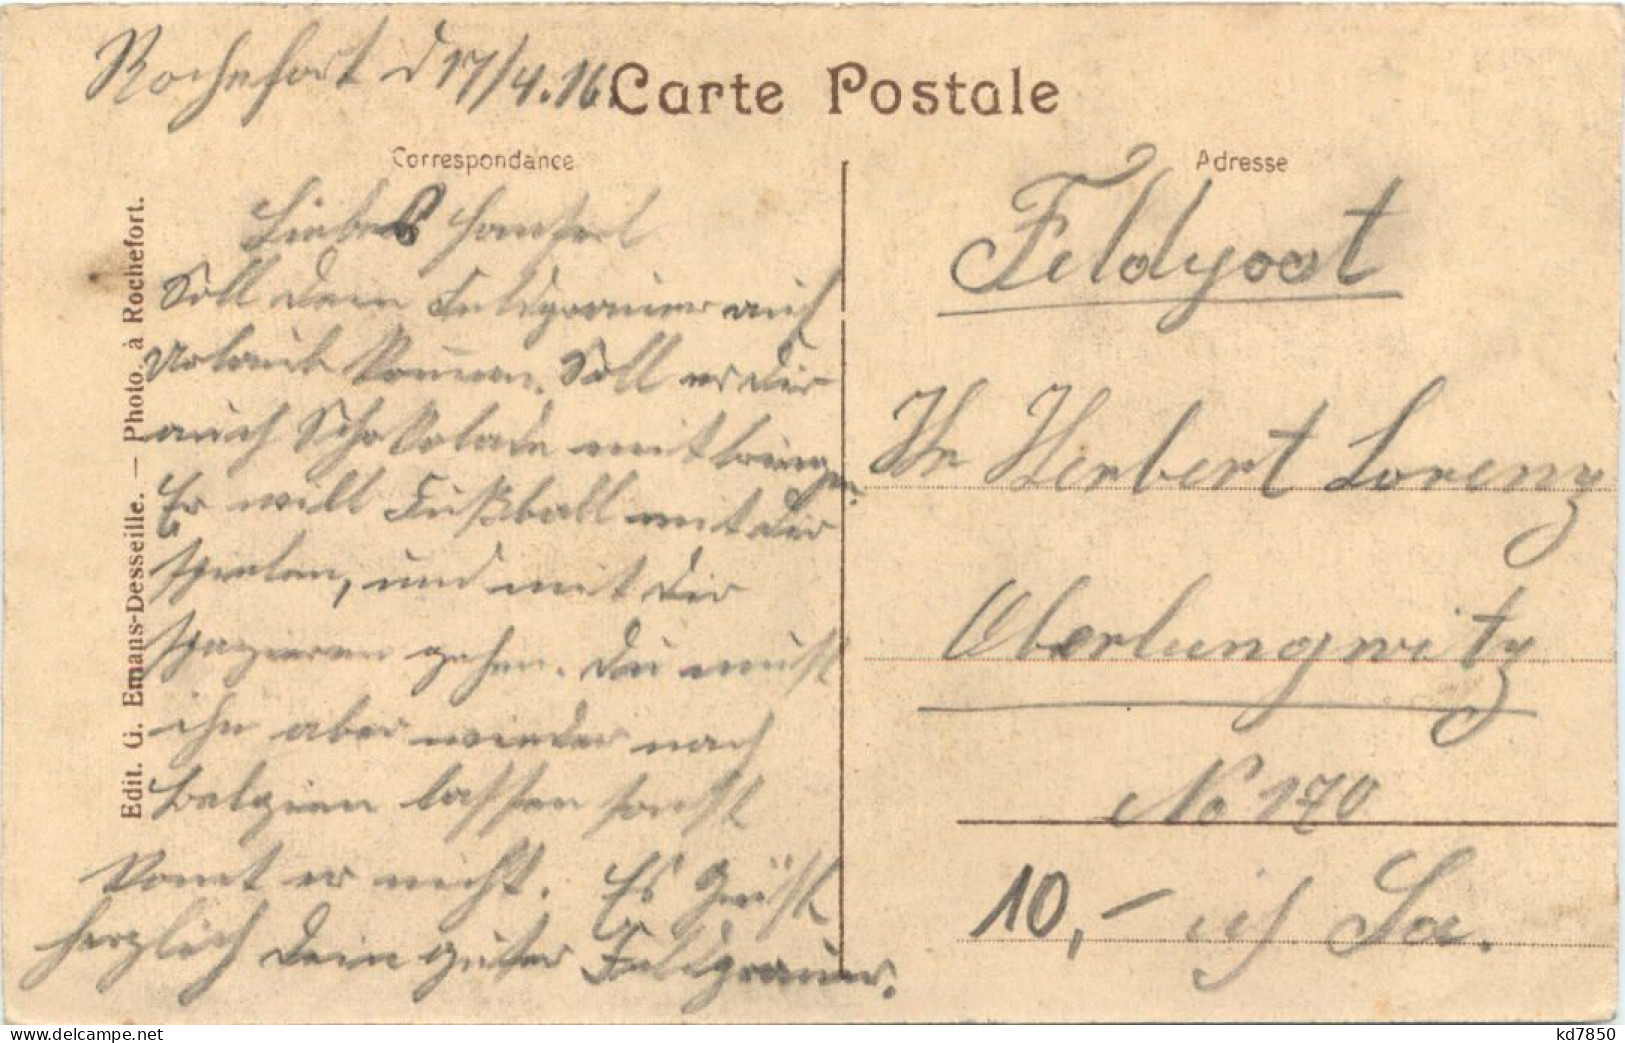 Rochefort d 17/4.16.
Carte Postale
Correspondance
Adresse
Edit. G. Emans-Desseille. — Photo. à Rochefort.
Liebes Hansel
Soll dein Feldgrauer auch
Urlaub kommen. Soll er dir
auch Schokolade mitbringen.
Er will Fußball mit dir
spielen, und mit dir
spazieren gehen. Du mußt
ihn aber wieder nach
Belgien lassen sonst
komt er nicht. Es Grüßt
herzlich dein guter Feldgrauer.
Feldpost
Hr Herbert Lorenz
Oberlungwitz
No 170
10,- i/s Sa.
www.delcampe.net
kd7850